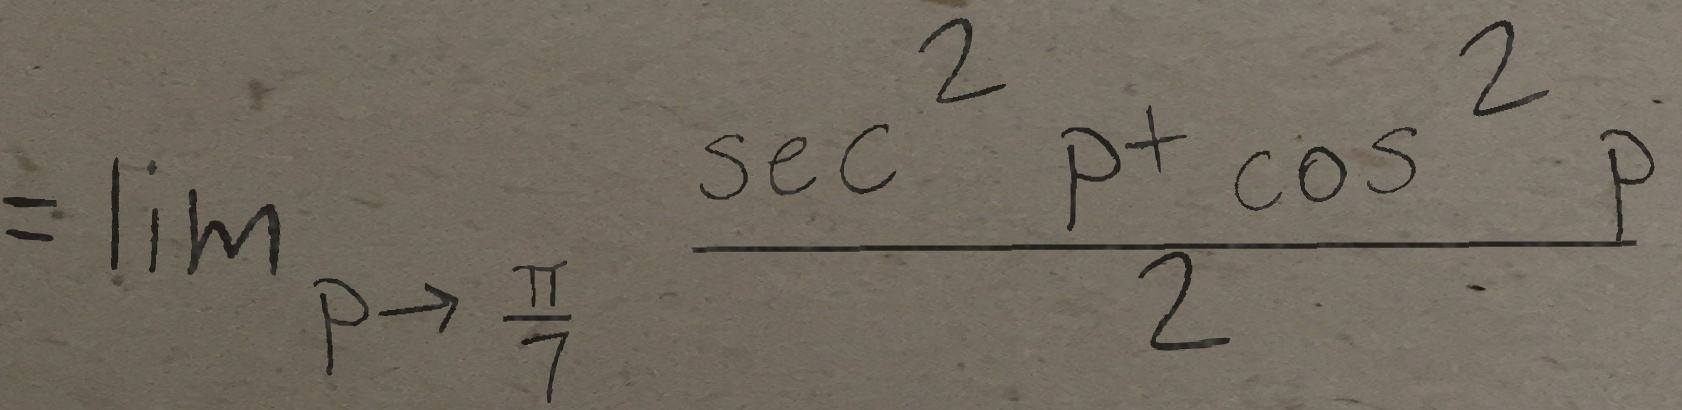 = \lim_{p \to \frac{\pi}{7}} \frac{\sec^2 p + \cos^2 p}{2}